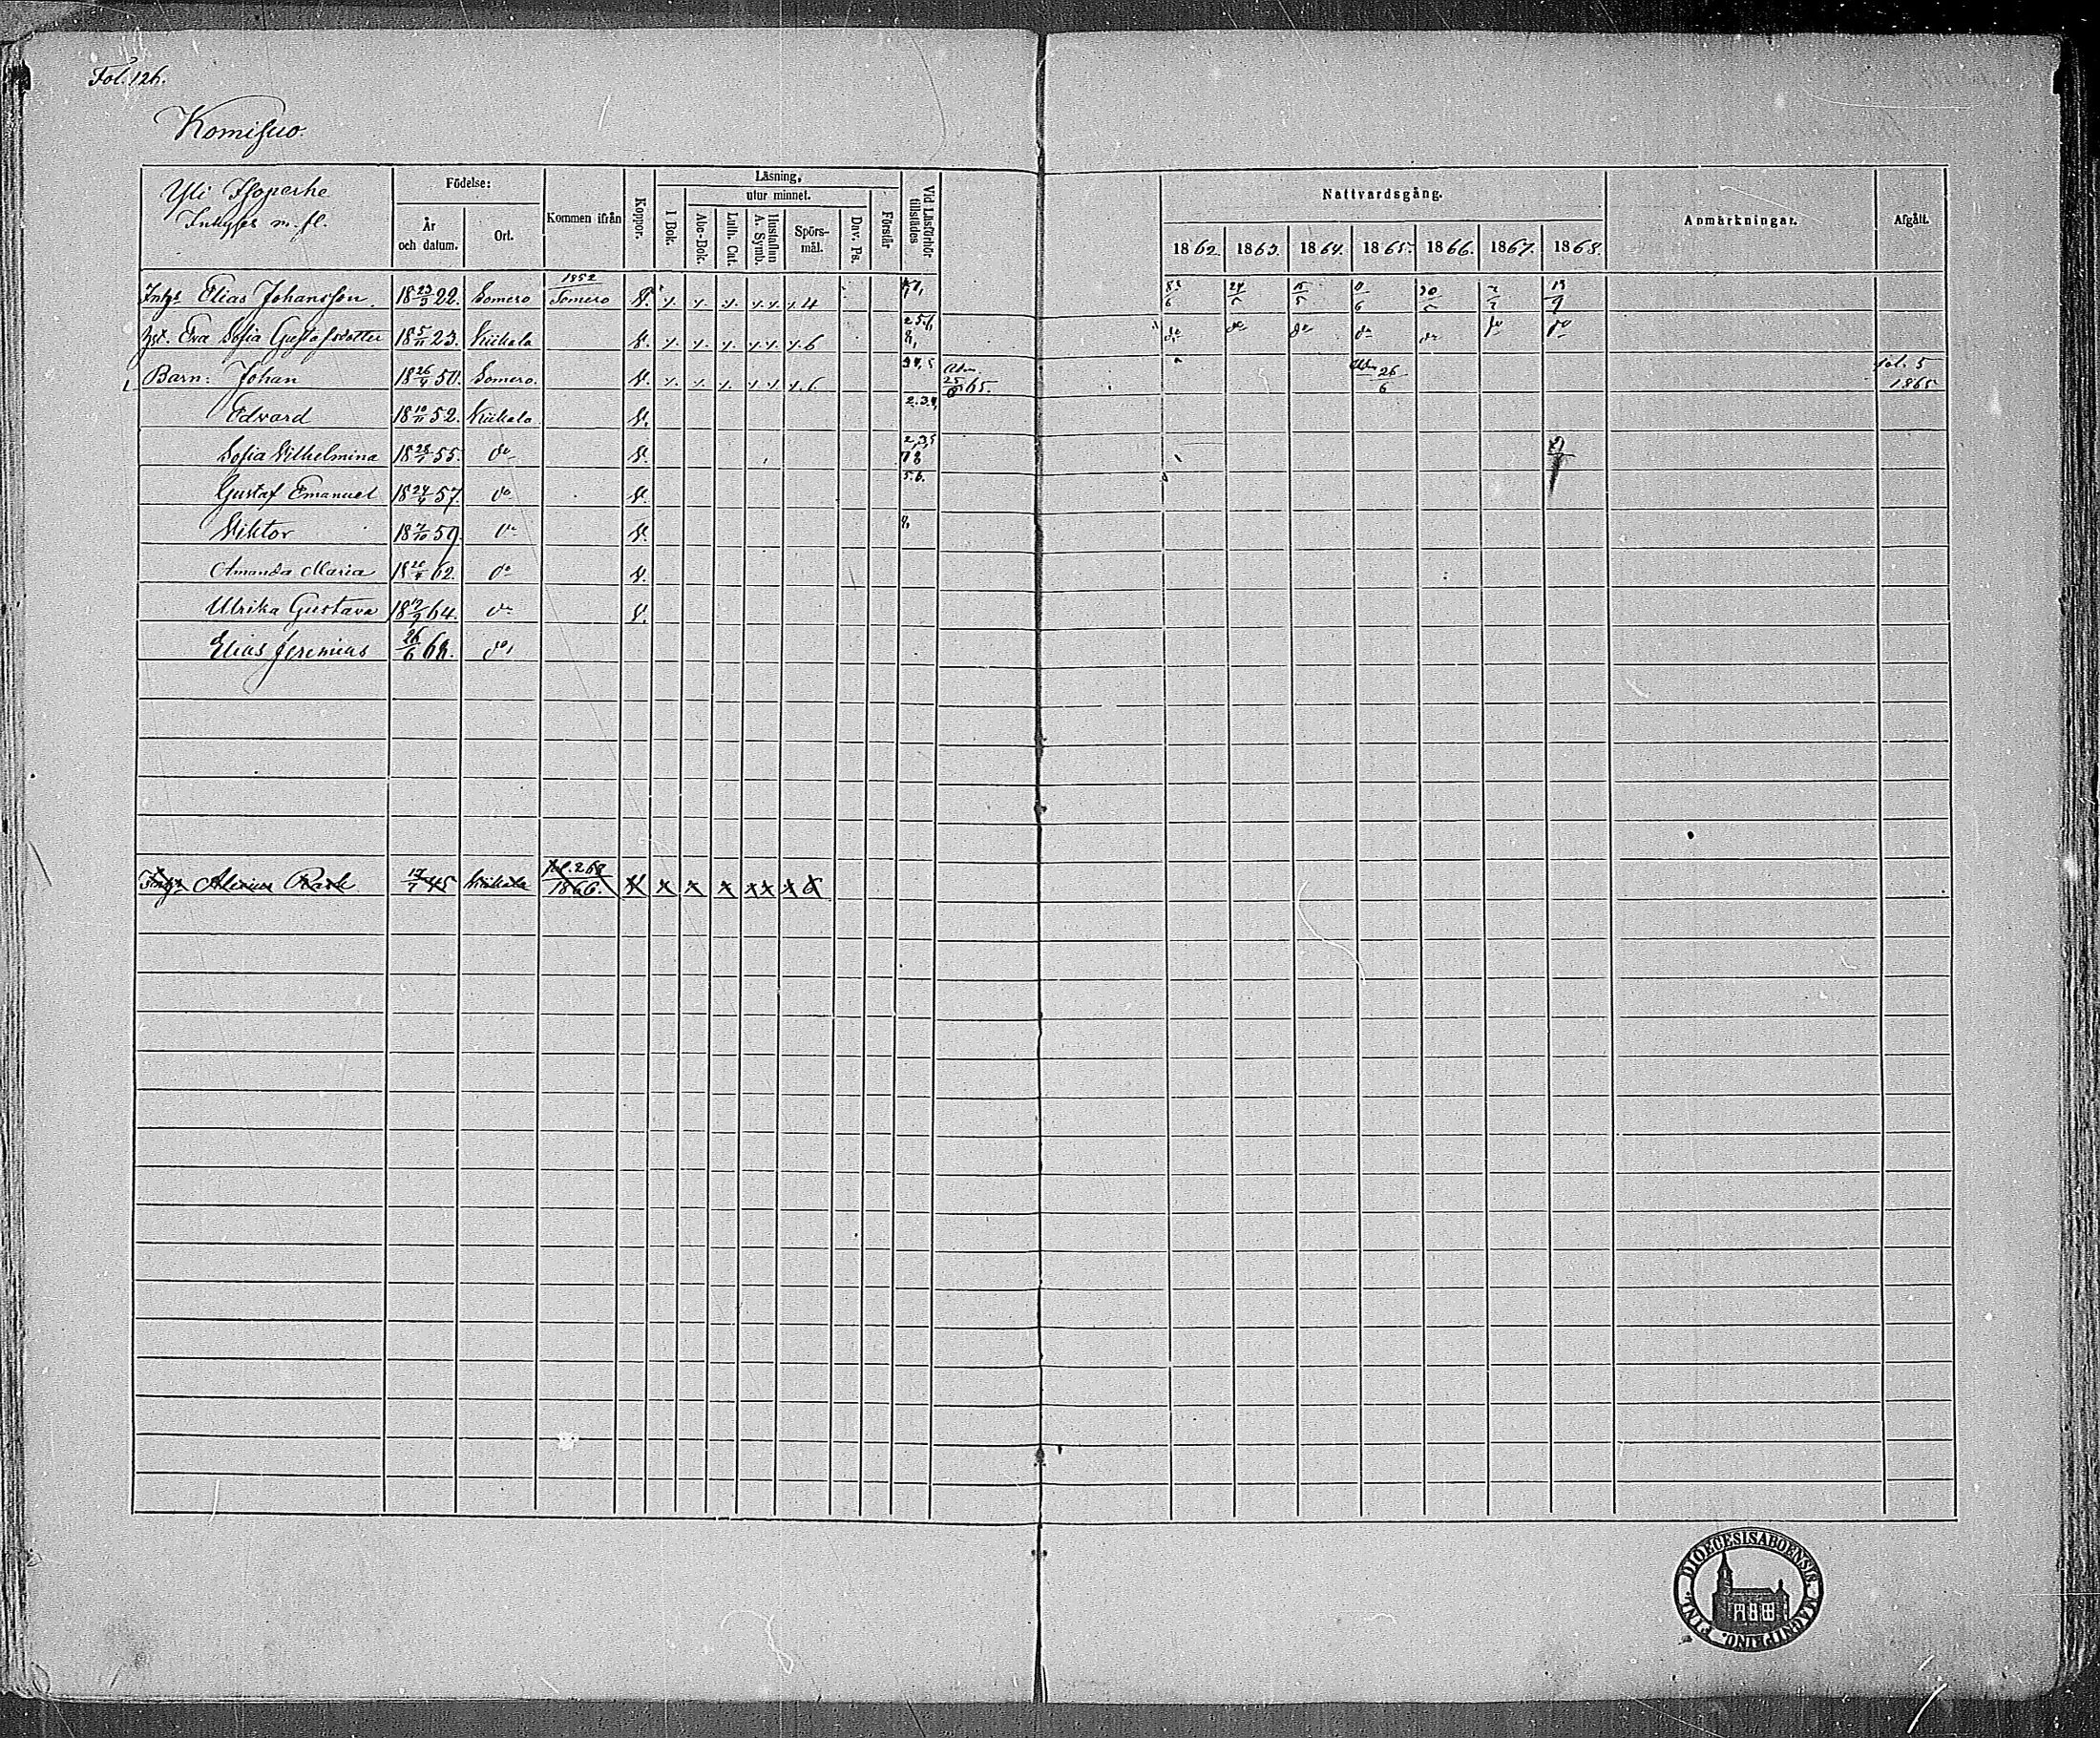 Fol. 126.
Komisuo.
Yli Isoperhe
Inhyses m. fl.
Födelse:
År och datum.
Ort.
Kommen ifrån
Koppor.
Läsning,
utur minnet.
I Bok.
Abc-Bok.
Luth. Cat.
Hustaflan A. Symb.
Spörs-mål.
Dav. Ps.
Förstår
Vid Läsförhör tillstädes
Nattvardsgång.
1862. 1863. 1864. 1865. 1866. 1867. 1868.
Anmärkningar.
Afgått.
Inhys Elias Johansson 18 23/3 22. Somero 1852 Somero v. x. x. x. x x x 4
Hst. Eva Sofia Gustafsdotter 18 5/11 23. Kiikala v. x. x. x. x x x. 6 do do do do do do do
Barn: Johan 18 26/4 50. Somero. v. x. x. x. x x x. 6 Adm. 25/6 65. Adm 26/6 fol. 5 1865
Edvard 18 10/11 52. Kiikala v.
Sofia Vilhelmina 18 28/1 55. do v.
Gustaf Emanuel 18 24/4 57. do v. 5.6.
Viktor 18 7/10 59. do v. 8,
Amanda Maria 18 20/4 62. do v.
Ulrika Gustava 18 12/9 64. do v.
Elias Jeremias 26/6 68. do
Inhys Alexius Rask 12/7 45 Kiikala fol. 260 1866. v x x x x x x 6
DIOECESIS ABOENSIS MAGNI PRINC. FINL.